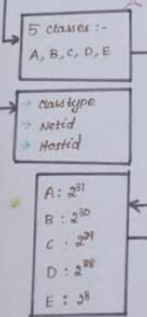 5 classes :-
A, B, C, D, E
→ Class type
→ Netid
→ Hostid
A : 2³¹
B : 2³⁰
C : 2²⁹
D : 2²⁸
E : 2⁸